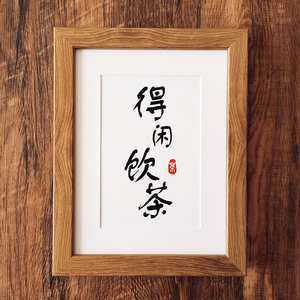 得闲饮茶